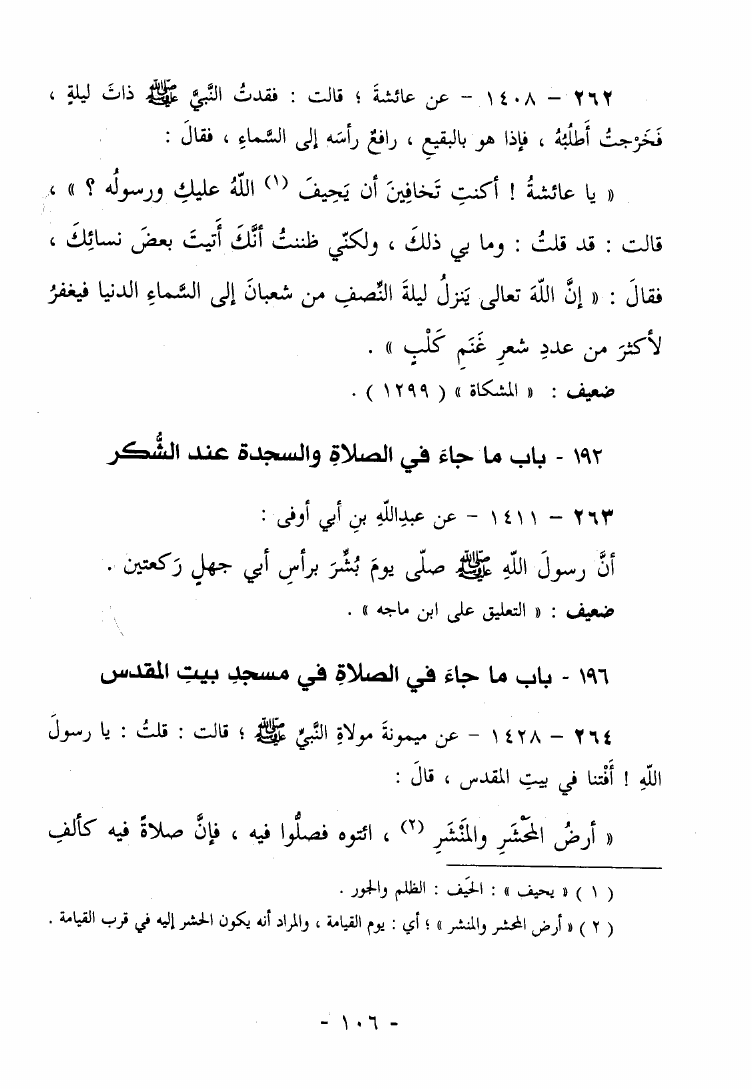 ٢٦٢ – ١٤٠٨ – عن عائشةَ ؛ قالت : فقدتُ النَّبيَّ ﷺ ذاتَ ليلةٍ ،
فَخَرجتُ أَطلُبُهُ ، فإذا هو بالبقيعِ ، رافعٌ رأسَه إلى السَّماءِ ، فقالَ :
« يا عائشةُ ! أكنتِ تَخافِينَ أن يَحِيفَ (١) اللّهُ عليكِ ورسولُه ؟ » ،
قالت : قد قلتُ : وما بي ذلكَ ، ولكنّي ظننتُ أنَّكَ أَتيتَ بعضَ نسائِكَ ،
فقالَ : « إنَّ اللّهَ تعالى يَنزلُ ليلةَ النِّصفِ من شعبانَ إلى السَّماءِ الدنيا فيغفرُ
لأكثرَ من عددِ شعرِ غَنَمِ كَلْبٍ » .
ضعيف : « المشكاة » ( ١٢٩٩ ) .
١٩٢ - باب ما جاءَ في الصلاةِ والسجدة عند الشُّكر
٢٦٣ – ١٤١١ – عن عبدِاللّهِ بنِ أبي أوفى :
أنَّ رسولَ اللّهِ ﷺ صلّى يومَ بُشِّرَ برأسِ أبي جهلٍ رَكعتين .
ضعيف : « التعليق على ابن ماجه » .
١٩٦ - باب ما جاءَ في الصلاةِ في مسجدِ بيتِ المقدس
٢٦٤ – ١٤٢٨ – عن ميمونةَ مولاةِ النَّبيِّ ﷺ ؛ قالت : قلتُ : يا رسولَ
اللّهِ ! أَفْتنا في بيتِ المقدس ، قالَ :
« أرضُ المَحْشَرِ والمَنْشَرِ (٢) ، ائتوه فصلُّوا فيه ، فإنَّ صلاةً فيه كألفِ
( ١ ) « يحيف » : الحَيف : الظلم والجور .
( ٢ ) « أرض المحشر والمنشر » ؛ أي : يوم القيامة ، والمراد أنه يكون الحشر إليه في قرب القيامة .
- ١٠٦ -